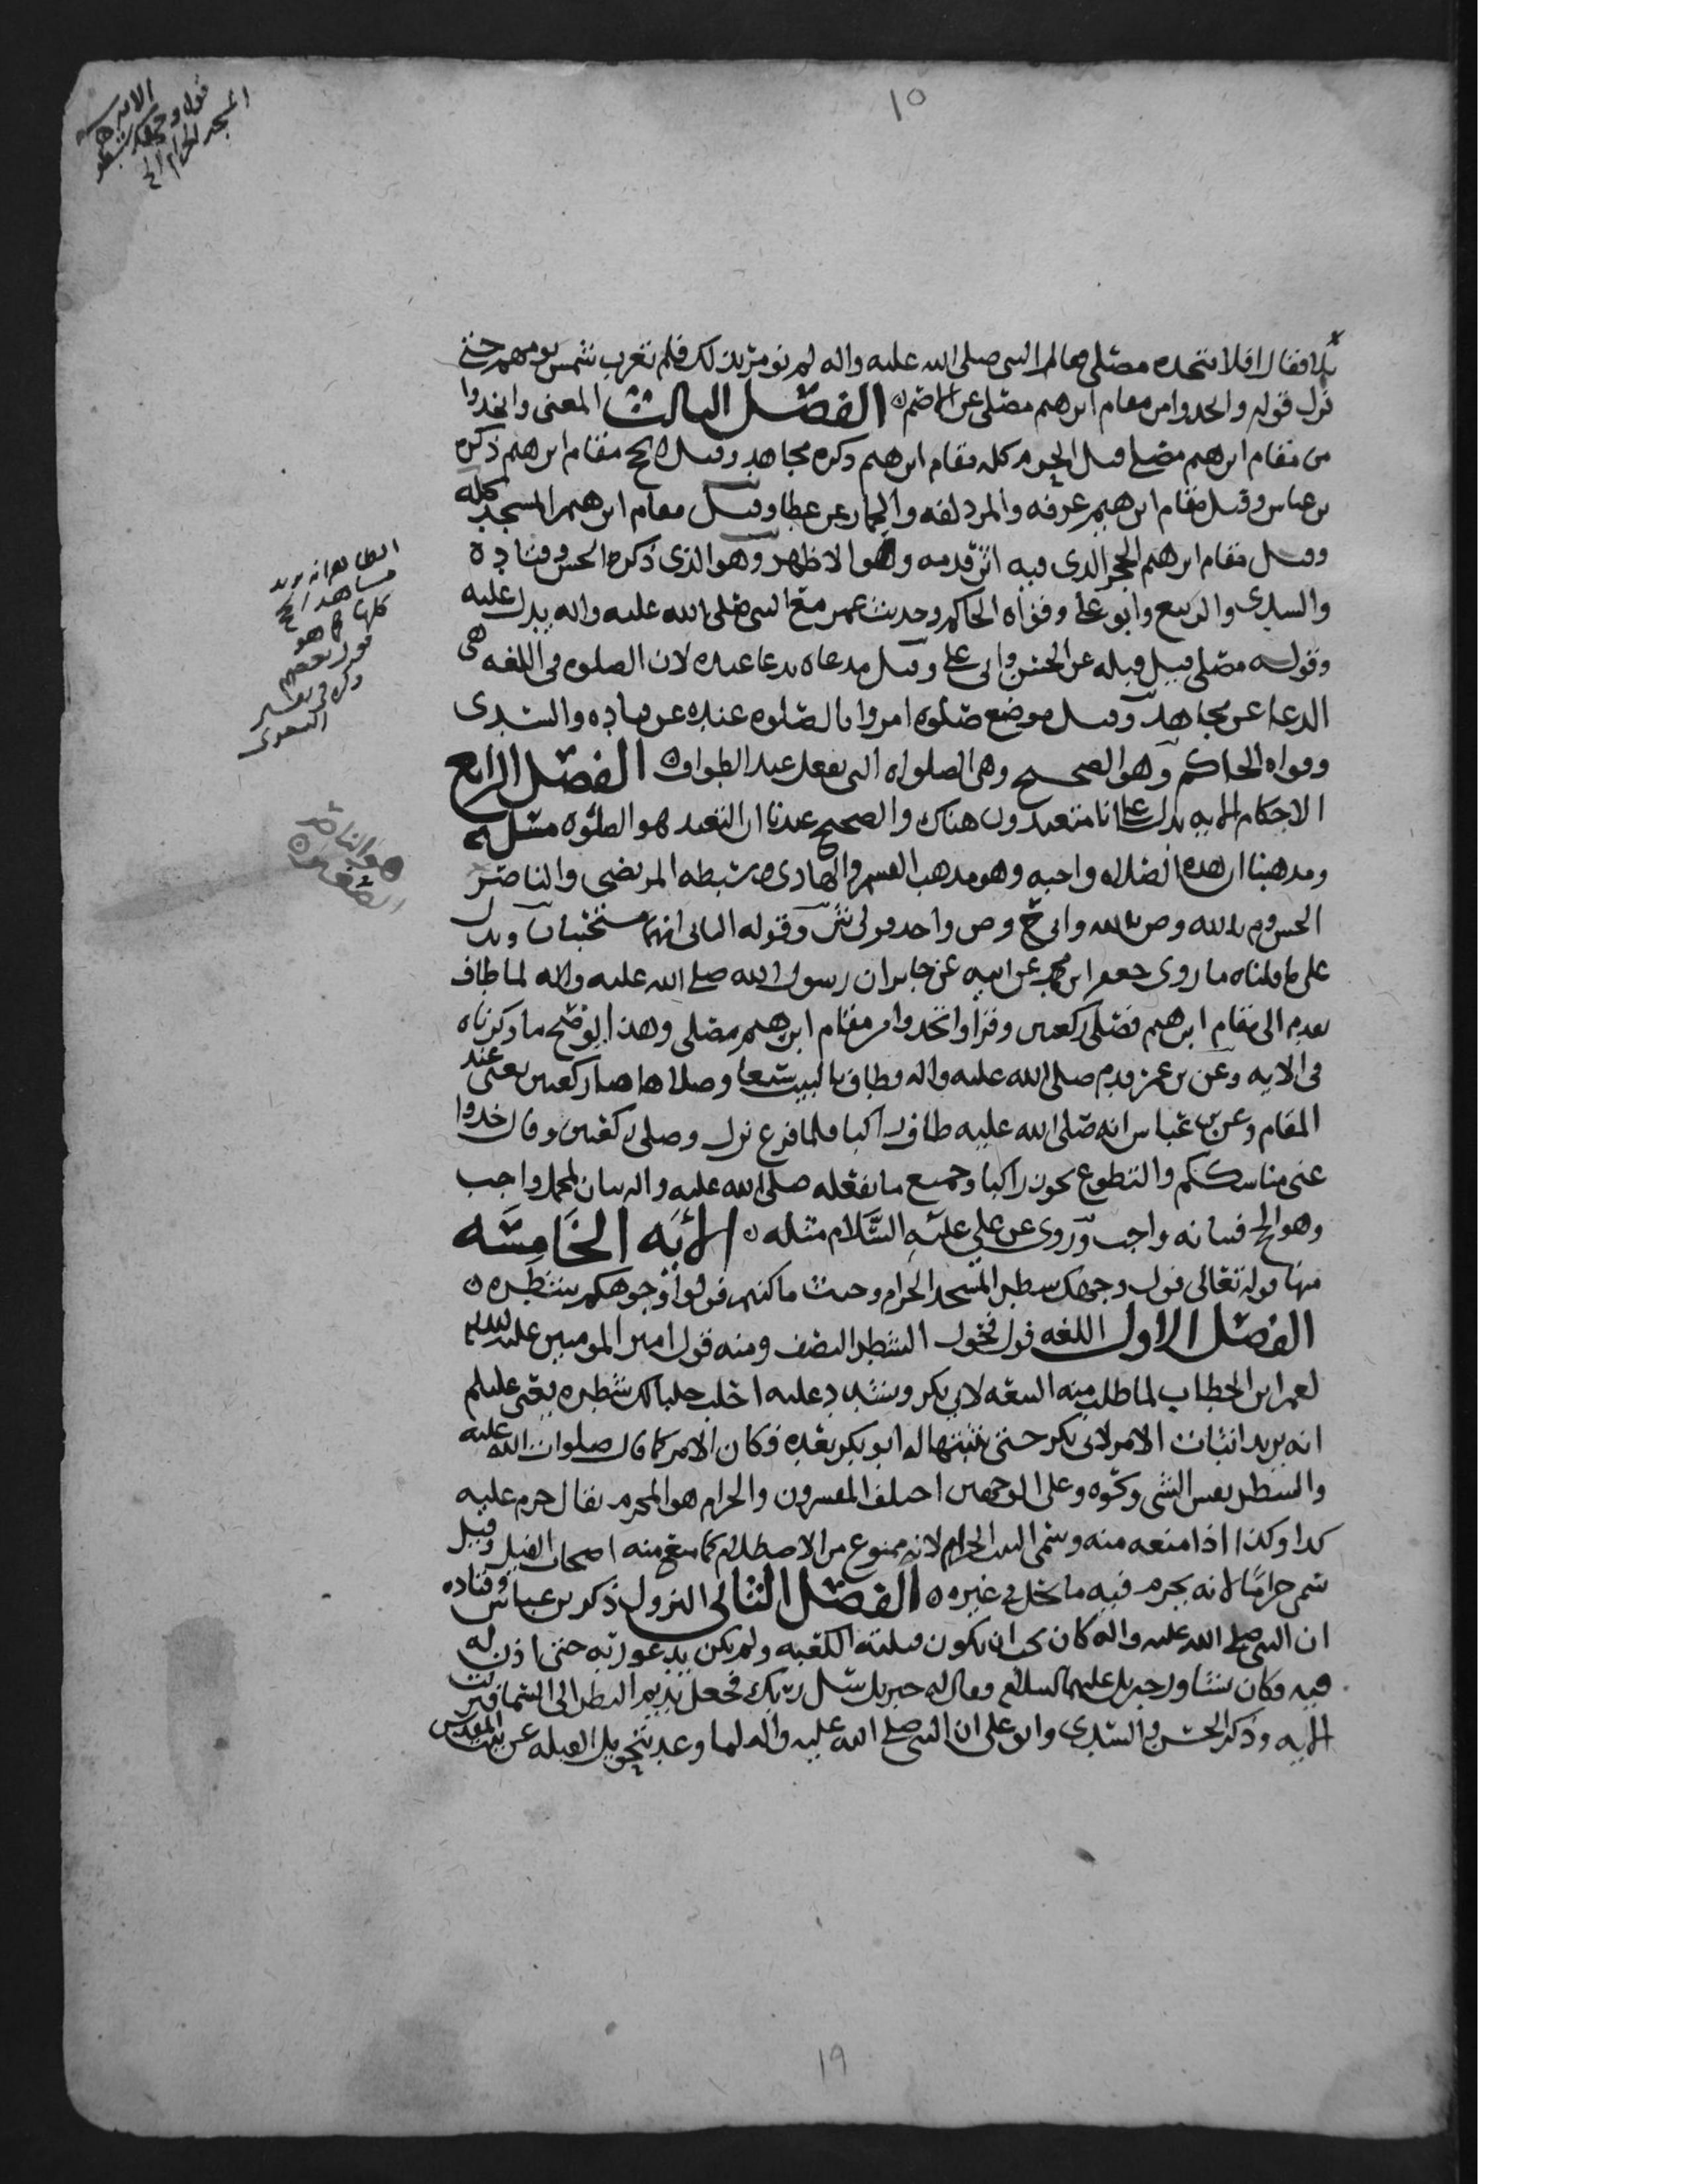 ١٥
الايه
قوله وجهك شطر
المسجد الحرام الخ
بلا فقال افلا نتخده مصلى فقال النبي صلى الله عليه واله لم نومر بذلك فلم تغرب شمس يومهم حتى
نزل قوله واتخدوا من مقام ابرهيم مصلى عن الاصم ٥ الفصل الثالث المعنى واتخدوا
من مقام ابرهيم مصلى قيل الحرم كله مقام ابرهيم ذكره مجاهد وقيل الحج مقام ابرهيم ذكره
بن عباس وقيل مقام ابرهيم عرفه والمزدلفه والجمار عن عطا وقيل مقام ابرهيم المسجد كله
وقيل مقام ابرهيم الحجر الذى فيه اثر قدمه وهو الاظهر وهو الذى ذكره الحسن وقتاده
والسدى والربيع وابو على وقواه الحاكم وحديث عمر مع النبي صلى الله عليه واله يدل عليه
وقوله مصلى قيل قبله عن الحسن وابى على وقيل مدعاه يدعا عنده لان الصلوه فى اللغه هى
الدعا عن مجاهد وقيل موضع صلوه امروا بالصلوه عنده عن قتاده والسدى
وقواه الحاكم وهو الصحيح وهى الصلوه التى تفعل عند الطواف ٥ الفصل الرابع
الاحكام الايه يدل على انا متعبدون هناك والصحيح عندنا ان التعبد هو الصلوه
ومذهبنا ان هذه الصلاه واجبه وهو مذهب القسم والهادى وسبطه المرتضى والناصر
الحسن وم بالله وص بالله وابى ح وص واحد قولى ش وقوله الثانى انهما مستحبتان ويدل
على ما قلناه ما روى جعفر ابن محمد عن ابيه عن جابر ان رسول الله صلى الله عليه واله لما طاف
تقدم الى مقام ابرهيم فصلى ركعتين وقرا واتخدوا من مقام ابرهيم مصلى وهذا يوضح ما ذكرناه
فى الايه وعن بن عمر قدم صلى الله عليه واله وطاف بالبيت سبعا وصلا هاهنا ركعتين يعنى عند
المقام وعن بن عباس انه صلى الله عليه طاف راكبا فلما فرغ نزل وصلى ركعتين وقال خدوا
عنى مناسككم والتطوع يجوز راكبا وجميع ما يفعله صلى الله عليه واله بيان لمجمل واجب
وهو الحج فبيانه واجب وروى عن علي عليه السلام مثله ٥ الايه الخامسه
منها قوله تعالى فول وجهك شطر المسجد الحرام وحيث ما كنتم فولوا وجوهكم شطره ٥
الفصل الاول اللغه فول فحول الشطر النصف ومنه قول امير المومنين عليه السلام
لعمر ابن الخطاب لما طلب منه البيعه لابى بكر وشدد عليه احلب حلبا لك شطره يعنى عليلم
انه يريد اثبات الامر لابى بكر حتى يثبتها له ابو بكر بعده فكان الامر كما قال صلوات الله عليه
والشطر نفس الشى ونحوه وعلى الوجهين اختلف المفسرون والحرام هو المحرم يقال حرم عليه
كدا وكذا اذا منعه منه وسمى البيت الحرام لانه ممنوع من الاصطلام كما منع منه اصحاب الفيل وقيل
سمى حراما لانه يحرم فيه ما يحل فى غيره ٥ الفصل الثانى النزول ذكر بن عباس وقتاده
ان النبي صلى الله عليه واله كان يحب ان يكون قبلته الكعبه ولم يكن يدعو ربه حتى اذن له
فيه وكان يشاور جبريل عليهما السلام وقال له جبريل سل ربك فجعل يديم النظر الى السما فنزلت
الايه وذكر الحسن والسدى وابو على ان النبي صلى الله عليه واله لما وعد تحويل القبله عن بيت المقدس
الظاهر انه يريد
مشاهد الحج
كلها كما هو
قول بعضهم
ذكره فى تفسير
البغوى
هو الناصر
١٩